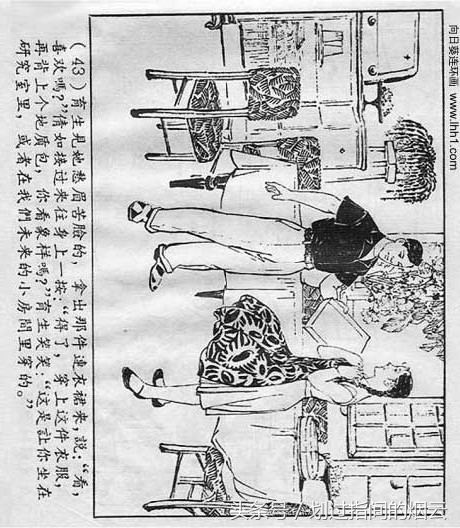 向日葵连环画 www.lhh1.com
（43）育生見她愁眉苦脸的，拿出那件連衣裙来，說：“看，
喜欢嗎？”倩如接过来往身上一按：“得了，穿上这件衣服，
再背上个地质包，你看象样嗎？”育生笑笑：“这是让你坐在
研究室里，或者在我們未来的小房間里穿的。”
头条号／划过指间的烟云